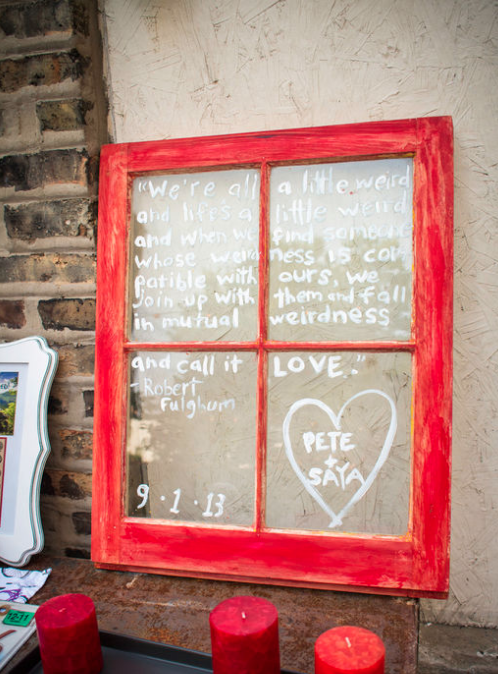 "We're all a little weird
and life's a little weird
and when we find someone
whose weirdness is com
patible with ours, we
join up with them and fall
in mutual weirdness
and call it LOVE."
-Robert
Fulghum
PETE
+
SAYA
9·1·13